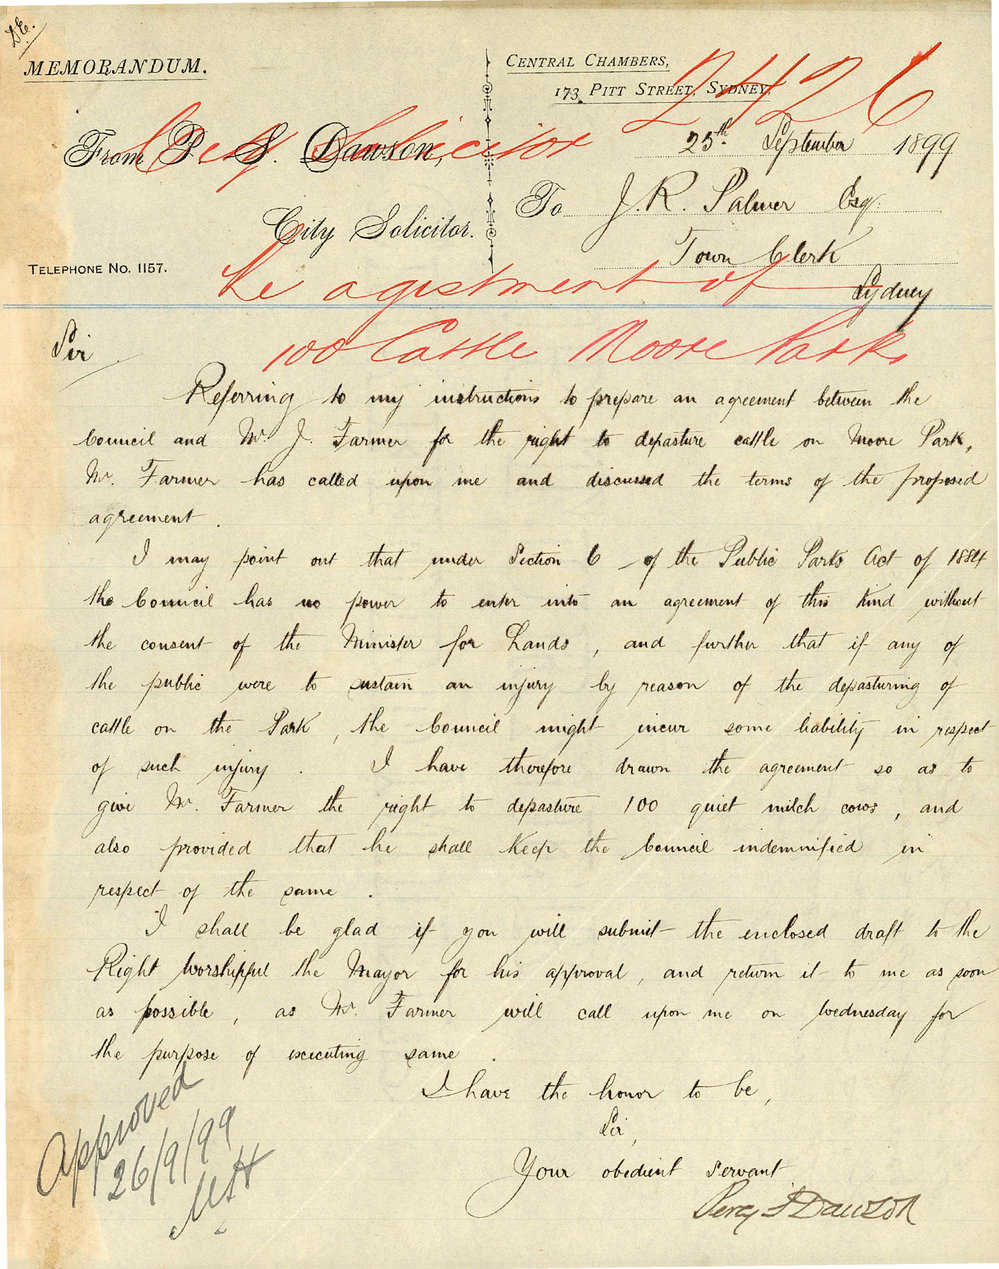 D.E.
MEMORANDUM.
CENTRAL CHAMBERS,
173, PITT STREET, SYDNEY,
2426
From P. S. Dawson,
City Solicitor
25th September 1899
City Solicitor.
To J. R. Palmer Esq.
Town Clerk
TELEPHONE No. 1157.
Sydney
re agistment of
100 Cattle Moore Park
Sir
Referring to my instructions to prepare an agreement between the
Council and Mr. J. Farmer for the right to depasture cattle on Moore Park,
Mr. Farmer has called upon me and discussed the terms of the proposed
agreement.
I may point out that under Section 6 of the Public Parks Act of 1884
the Council has no power to enter into an agreement of this kind without
the consent of the Minister for Lands, and further that if any of
the public were to sustain an injury by reason of the depasturing of
cattle on the Park, the Council might incur some liability in respect
of such injury. I have therefore drawn the agreement so as to
give Mr. Farmer the right to depasture 100 quiet milch cows, and
also provided that he shall keep the Council indemnified in
respect of the same.
I shall be glad if you will submit the enclosed draft to the
Right Worshipful the Mayor for his approval, and return it to me as soon
as possible, as Mr. Farmer will call upon me on Wednesday for
the purpose of executing same.
I have the honor to be,
Sir,
Your obedient servant
Percy S Dawson
Approved
26/9/99
MH